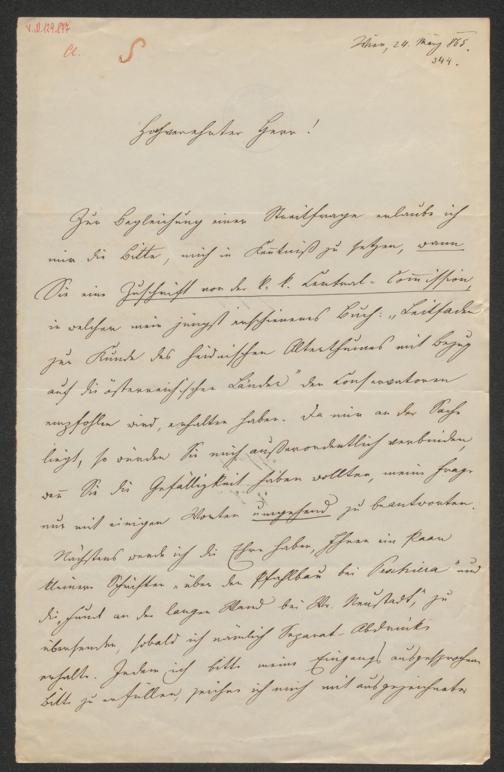 V.D.129.897
a. S
Wien, 24. März 865.
344.
Hochverehrter Herr!
Zur Begleichung einer Streitfrage erlaube ich
mir die Bitte, mich in Kenntniß zu setzen, wann
Sie eine Zuschrift von der k. k. Central-Commission,
in welcher mein jüngst erschienenes Buch: „Leitfaden
zur Kunde des heidnischen Alterthumes mit Bezug
auf die österreichischen Länder" den Conservatoren
empfohlen wird, erhalten haben. Da mir an der Sache
liegt, so würden Sie mich außerordentlich verbinden,
wenn Sie die Gefälligkeit haben wollten, meine Frage
nur mit einigen Worten umgehend zu beantworten.
Nächstens werde ich die Ehre haben, Ihnen ein Paar
kleinere Schriften „über den Pfahlbau bei Peschiera" und
die „Funde an der langen Wand bei Wr. Neustadt", zu
übersenden, sobald ich nämlich Separat-Abdrücke
erhalte. Indem ich bitte meine Eingangs ausgesprochene
Bitte zu erfüllen, zeichne ich mich mit ausgezeichneter